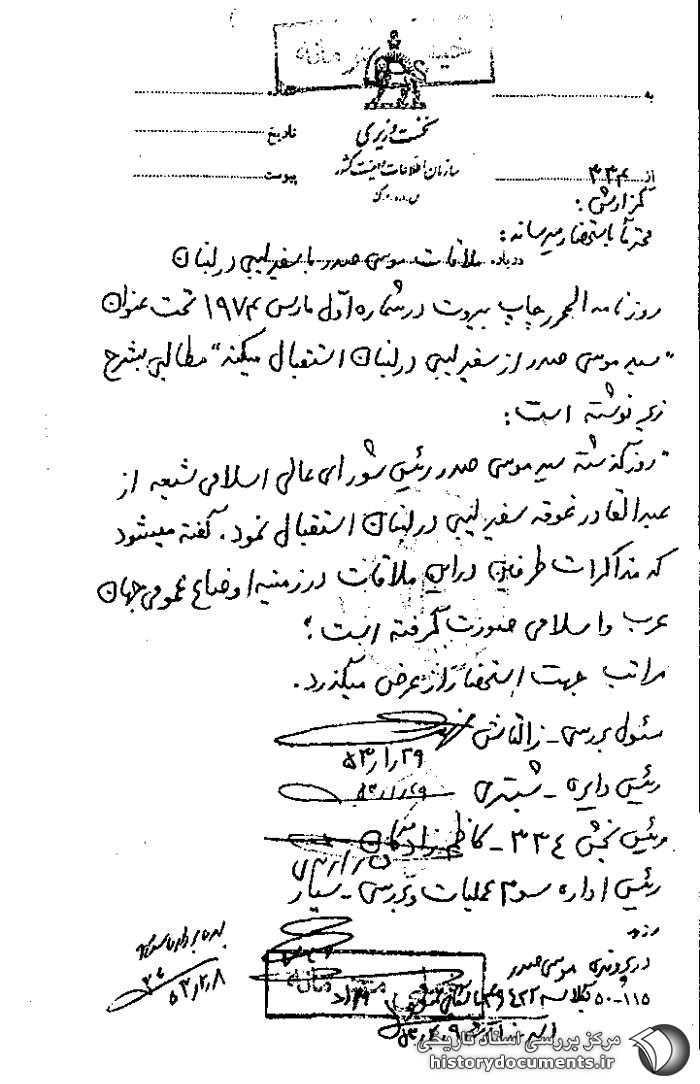 خیلی محرمانه
به
شماره
نخست وزیری
تاریخ
سازمان اطلاعات و امنیت کشور
از ۳۳۴
پیوست
س.ا.و.ا.ک
گزارش:
محترماً باستحضار میرساند:
درباره ملاقات موسی صدر با سفیر لیبی در لبنان
روزنامه المحرر چاپ بیروت در شماره اول مارس ۱۹۷۴ تحت عنوان
"سید موسی صدر از سفیر لیبی در لبنان استقبال میکند" مطالبی بشرح
زیر نوشته است:
"روز گذشته سید موسی صدر رئیس شورای عالی اسلامی شیعه از
عبدالقادر غوقه سفیر لیبی در لبنان استقبال نمود. گفته میشود
که مذاکرات طرفین در این ملاقات در زمینه اوضاع عمومی جهان
عرب و اسلامی صورت گرفته است"
مراتب جهت استحضار از عرض میگذرد.
مسئول بررسی - ژالتاش
۵۳/۱/۲۹
رئیس دایره - شبتری
۵۳/۱/۲۹
رئیس بخش ۳۳۴ - کاظم زادگان
رئیس اداره سوم عملیات و بررسی - سیار
در پرونده موسی صدر
۵۳/۲/۸
۱۱۵-۵۰
مرکز بررسی اسناد تاریخی
historydocuments.ir